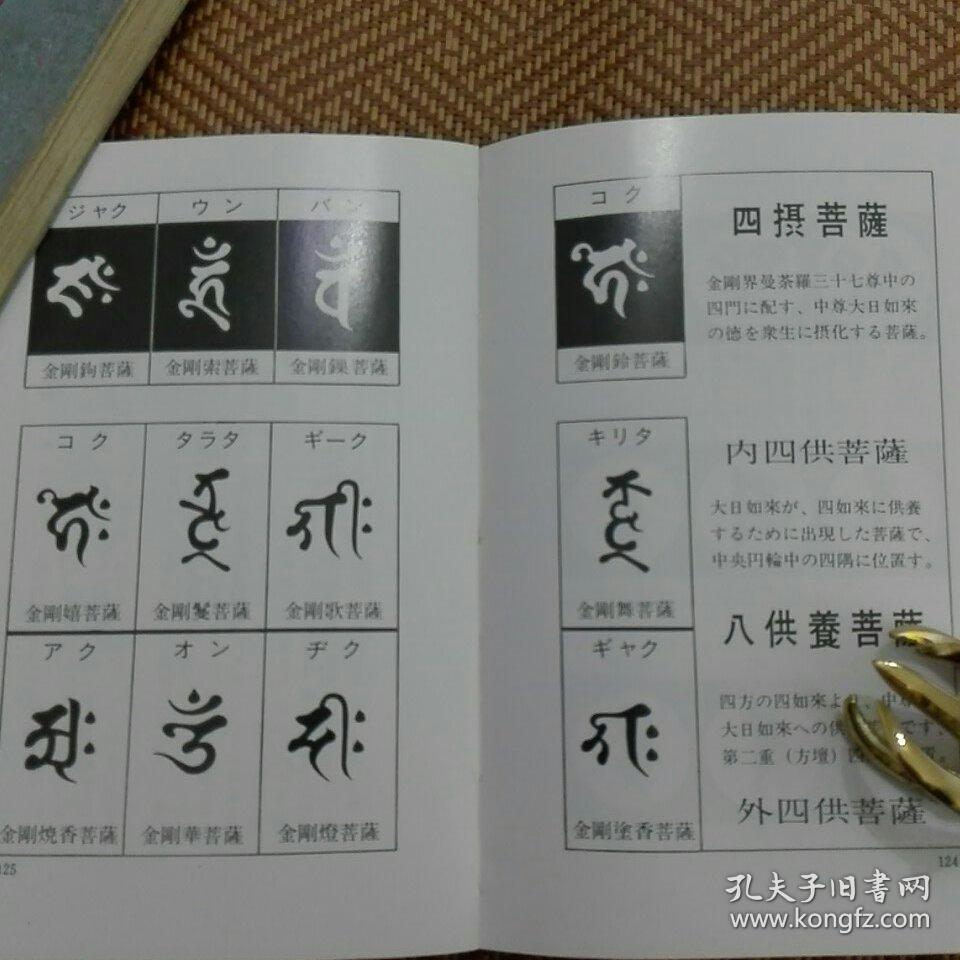 四摂菩薩
金剛界曼荼羅三十七尊中の
四門に配す、中尊大日如來
の徳を衆生に摂化する菩薩。
コク
金剛鈴菩薩
バン
金剛鏁菩薩
ウン
金剛索菩薩
ジャク
金剛鉤菩薩
内四供菩薩
大日如來が、四如來に供養
するために出現した菩薩で、
中央円輪中の四隅に位置す。
キリタ
金剛舞菩薩
ギーク
金剛歌菩薩
タラタ
金剛鬘菩薩
コク
金剛嬉菩薩
八供養菩薩
四方の四如來より、中尊
大日如來への供 です、
第二重（方壇）四
外四供菩薩
ギャク
金剛塗香菩薩
ヂク
金剛燈菩薩
オン
金剛華菩薩
アク
金剛焼香菩薩
125
124
孔夫子旧書网
www.kongfz.com